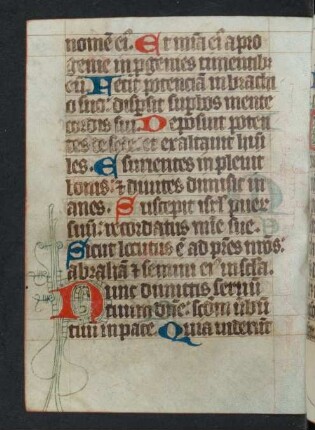 nomē ei. Et mīa ei a pro
genie in p̄genies timentibꝫ
eū Fecit potenciā in brachio
o suo: dispsit supbos mente
cordis sui Deposuit poten
tes de sede: et exaltauit humi
les. Esurientes impleuit
bonis: ⁊ diuites dimisit in
anes. Suscepit isrl puer
suū: recordatus mīe sue.
Sicut locutus ē ad pr̄es nr̄os:
abrahā ⁊ semini ei in scla.
Nunc dimittis seruū
tuum dn̄e: scdm ūbū
tuū in pace. Quia uiderūt